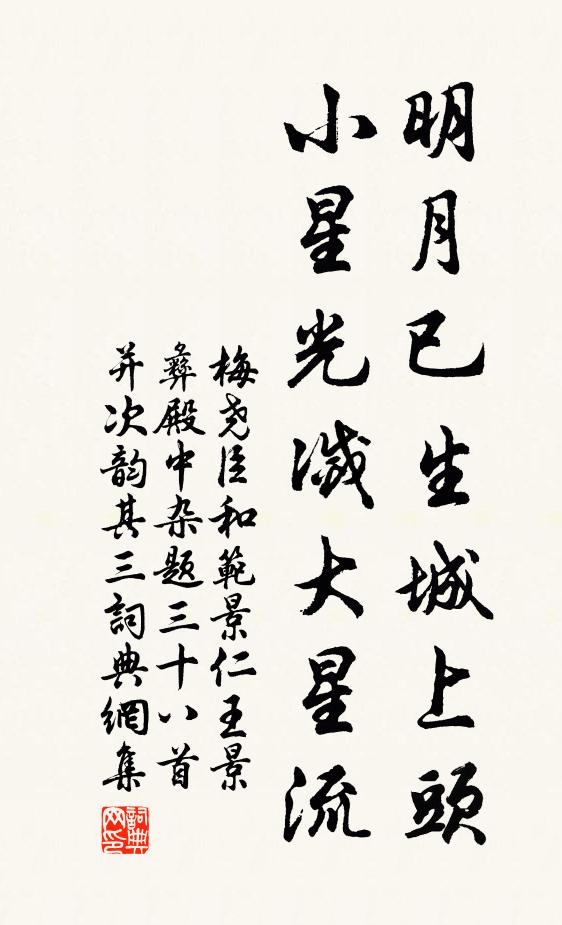 明月已生城上頭
小星光滅大星流
梅尧臣和範景仁王景
彝殿中杂題三十八首
并次韵其三詞典網集
詞典
网印